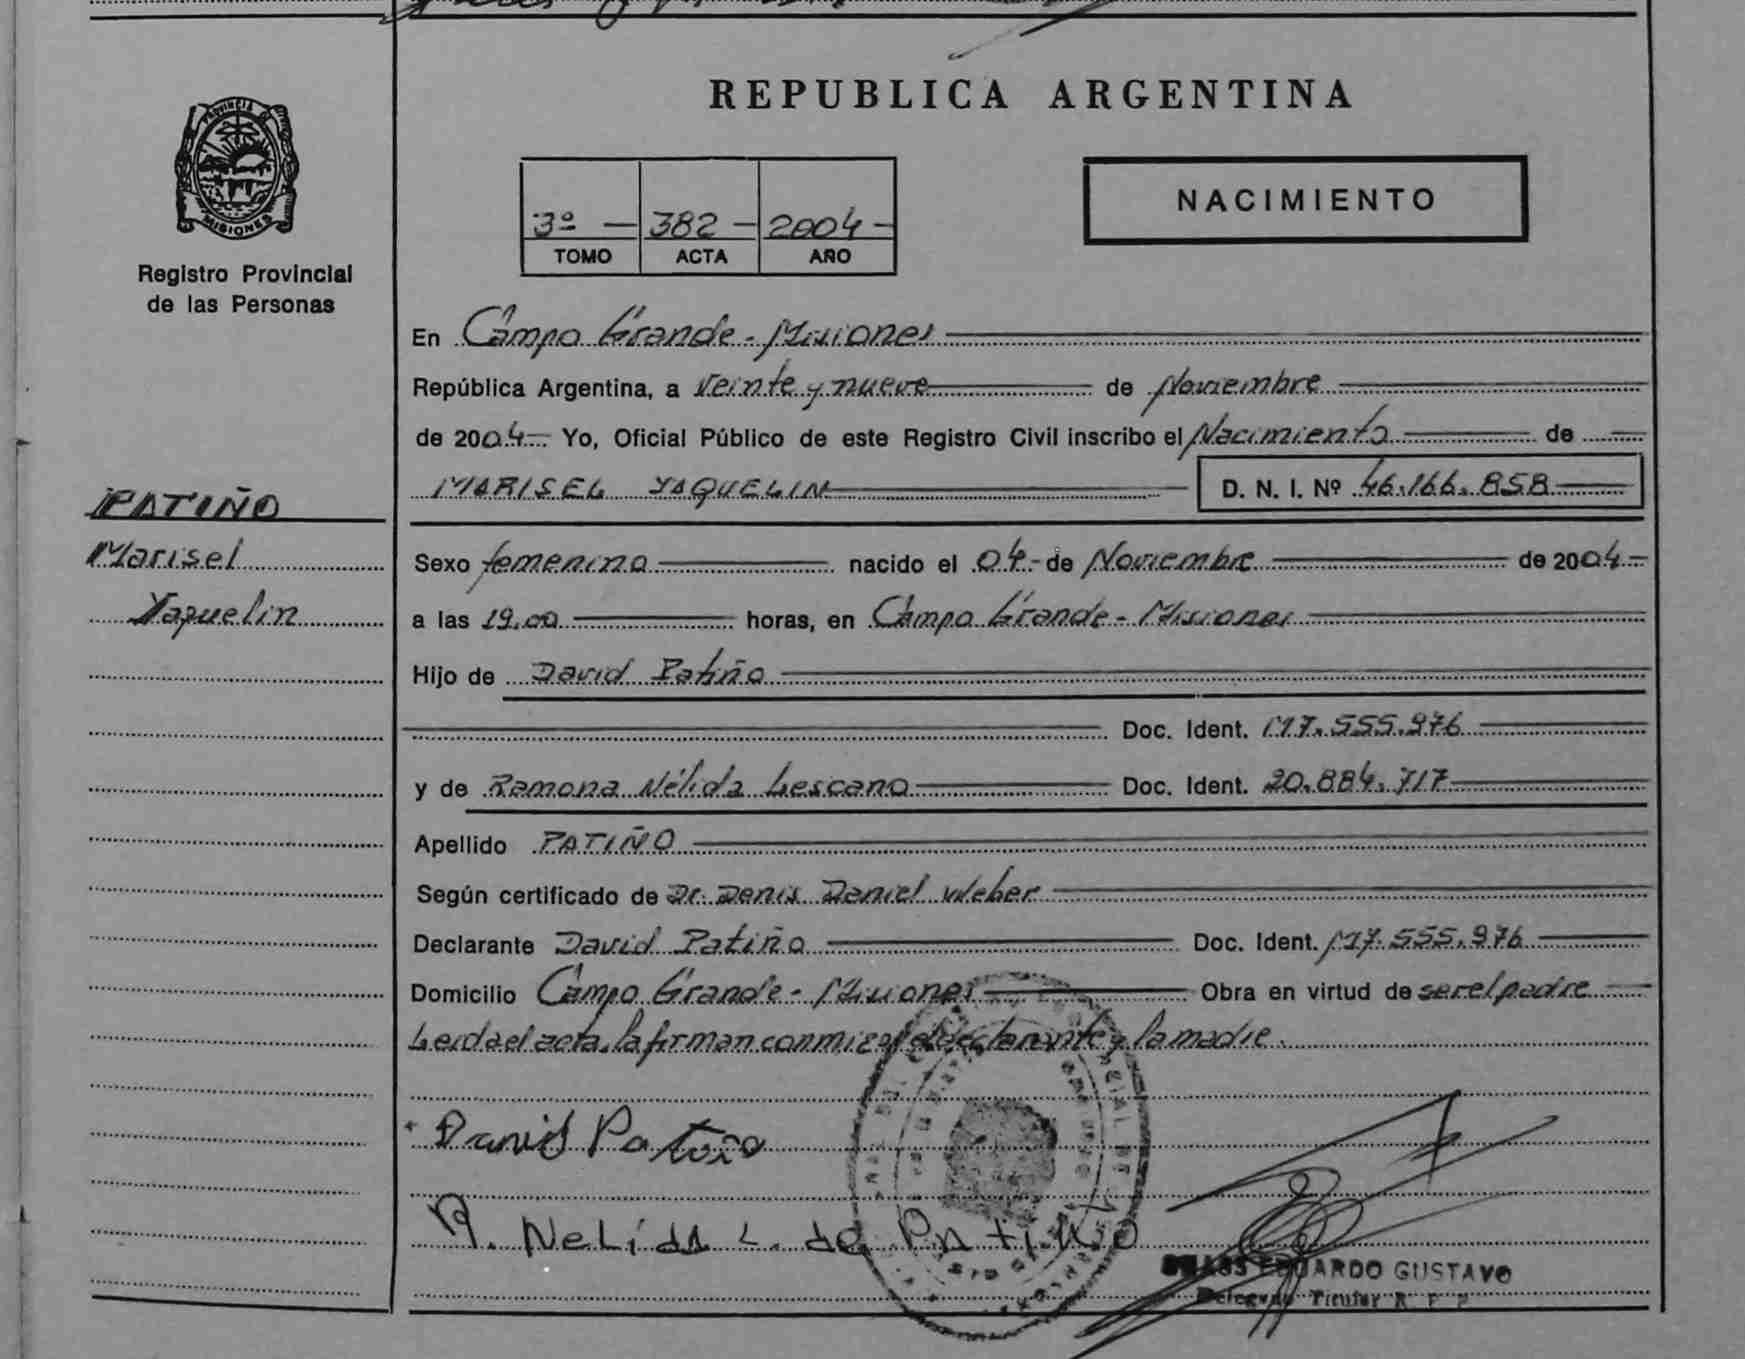 PROVINCIA DE
MISIONES
Registro Provincial
de las Personas
REPUBLICA ARGENTINA
3º — 382 — 2004 —
TOMO ACTA AÑO
NACIMIENTO
En Campo Grande - Misiones
República Argentina, a Veinte y nueve de Noviembre
de 2004 — Yo, Oficial Público de este Registro Civil inscribo el Nacimiento de
MARISEL YAQUELIN D. N. I. Nº 46.166.858
PATIÑO
Marisel
Yaquelin
Sexo femenino nacido el 04 - de Noviembre de 2004 -
a las 19.00 horas, en Campo Grande - Misiones
Hijo de David Patiño
Doc. Ident. M7.555.976
y de Ramona Nélida Lescano Doc. Ident. 20.884.717
Apellido PATIÑO
Según certificado de Dr. Denis Daniel Weber
Declarante David Patiño Doc. Ident. M7.555.976
Domicilio Campo Grande - Misiones Obra en virtud de ser el padre
Leida el acta, la firman conmigo el declarante y la madre.
David Patiño
R. Nelida L. de Patiño
EDUARDO GUSTAVO
Delegado Titular R. P. P.